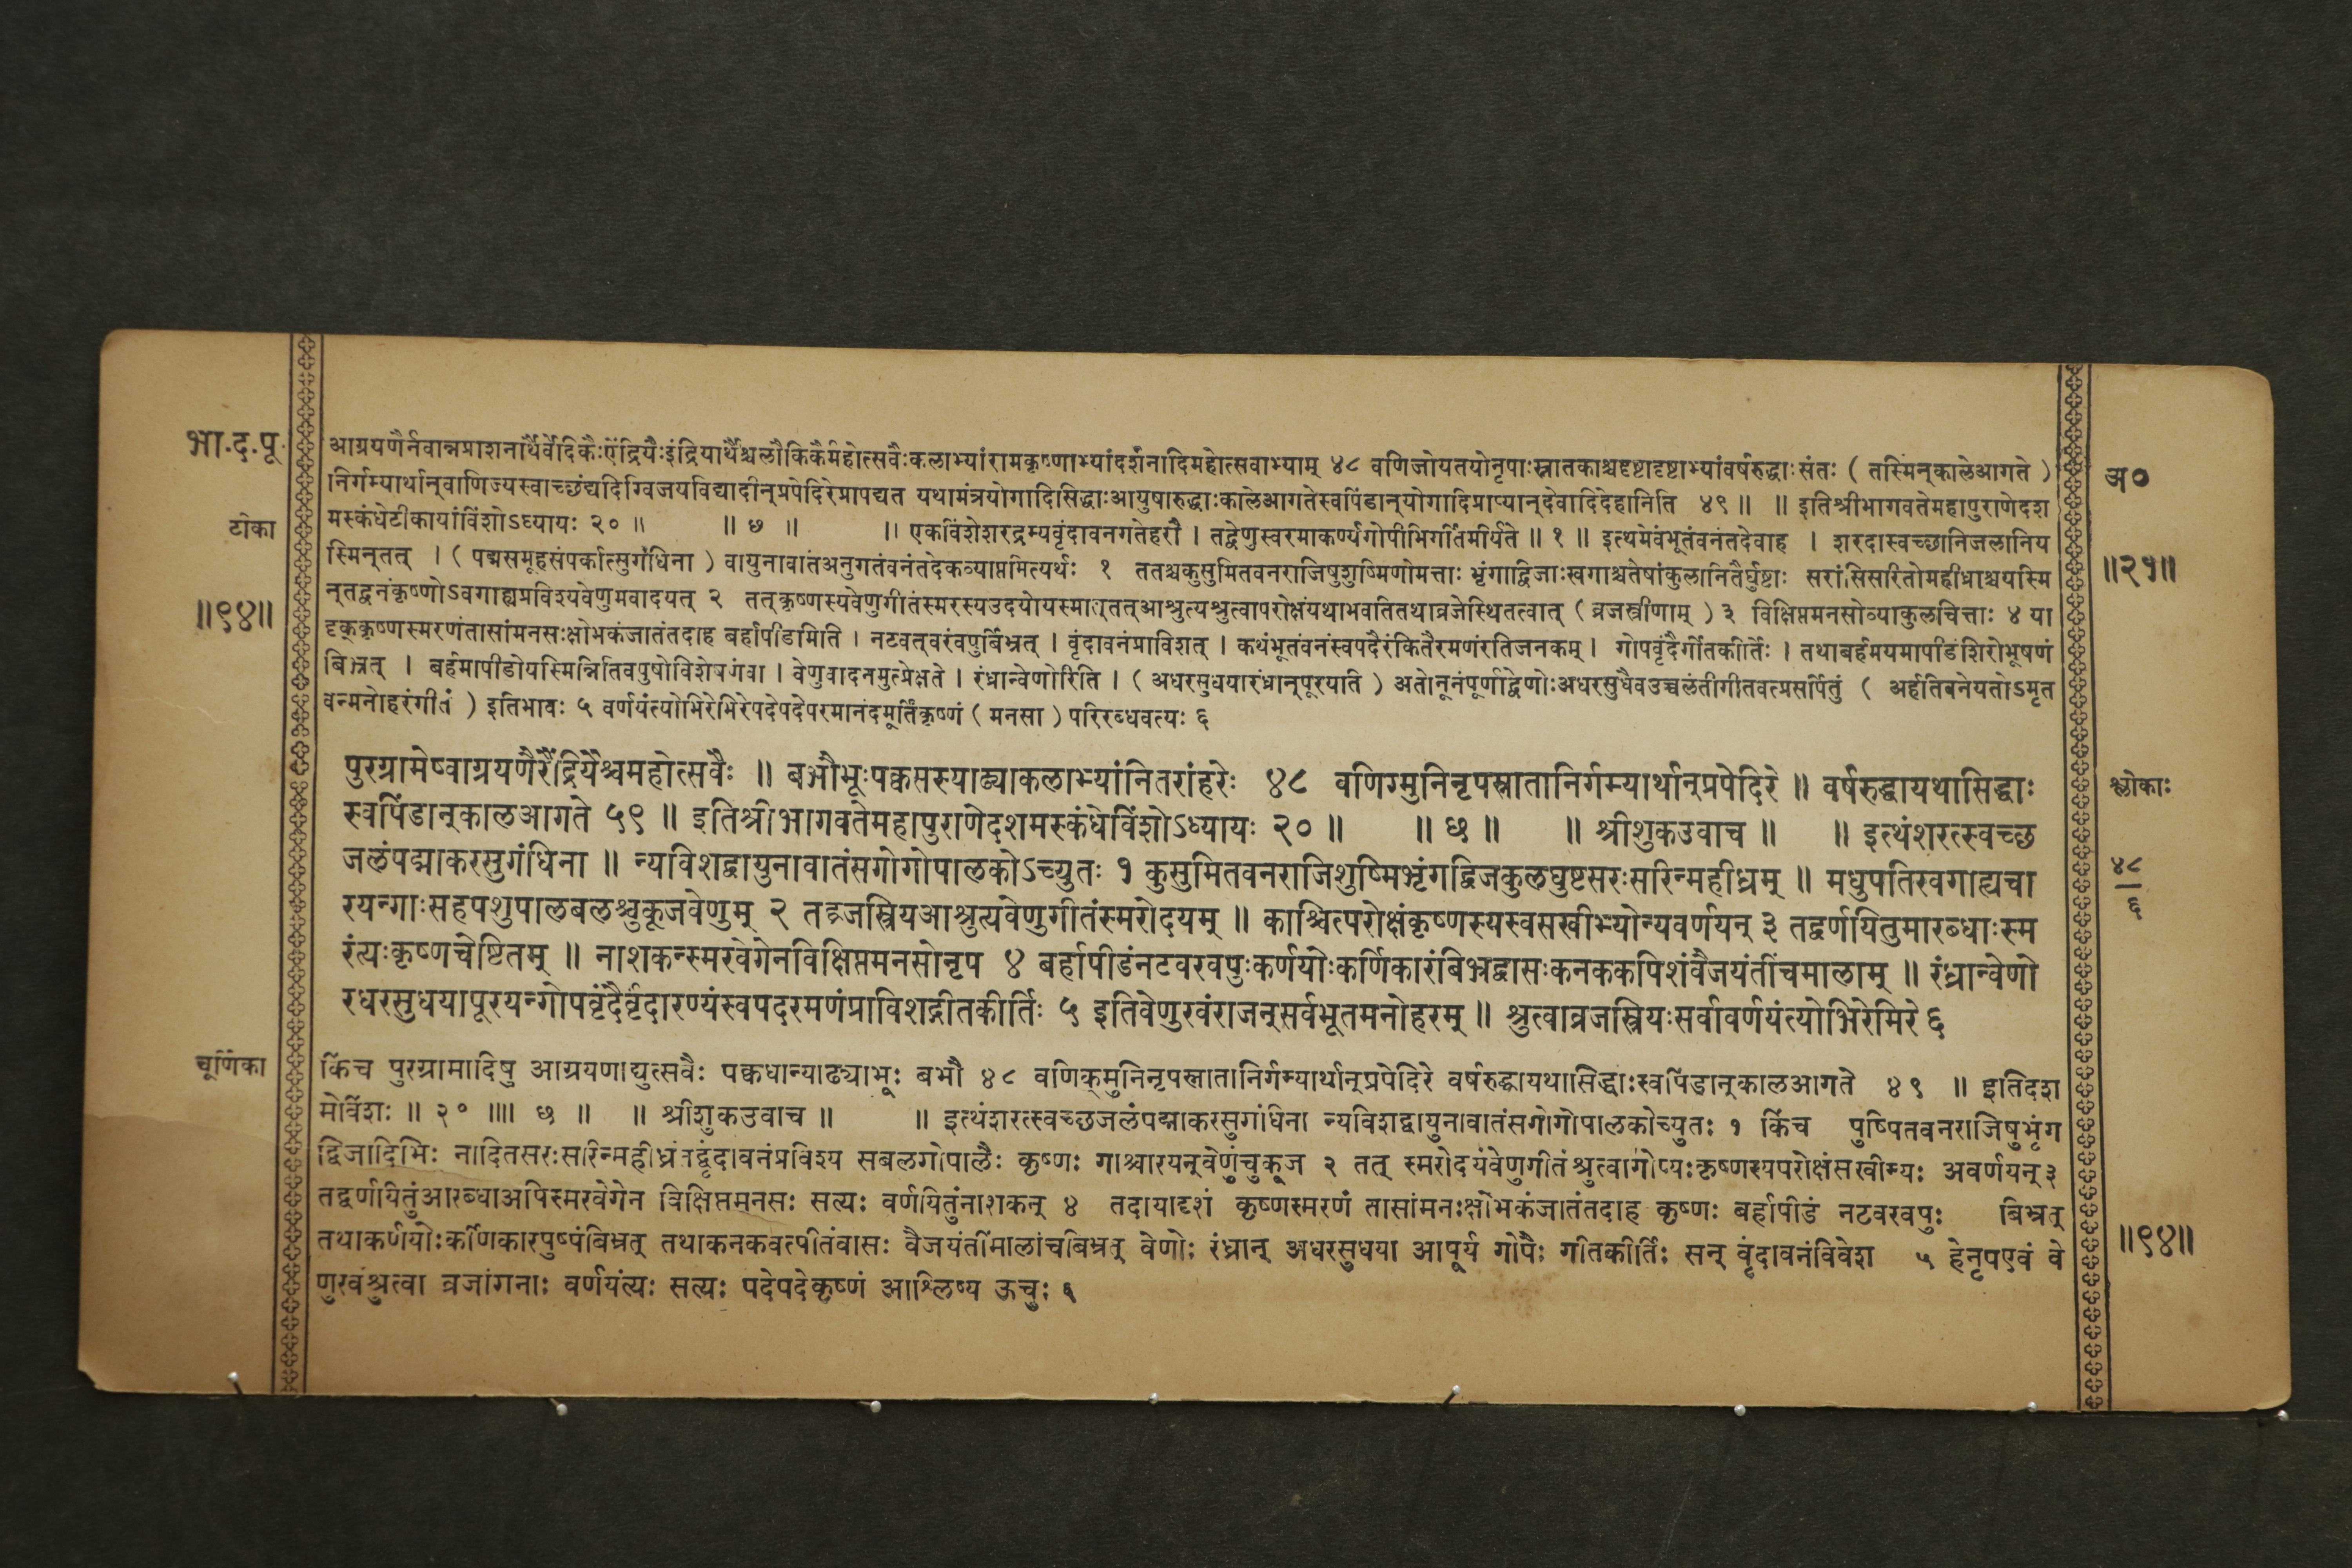 भा.द.पू.
आग्रयणैर्नवान्नप्राशनार्थैर्वैदिकैःऐंद्रियैःइंद्रियार्थैश्चलौकिकैर्महोत्सवैःकलाभ्यांरामकृष्णाभ्यांदर्शनादिमहोत्सवाभ्याम् ४८ वणिजोयतयोनृपाःस्नातकाश्चदृष्टादृष्टाभ्यांवर्षरुद्धाःसंतः ( तस्मिन्कालेआगते )
अ०
निर्गम्यार्थान्वाणिज्यस्वाच्छंद्यदिग्विजयविद्यादीन्प्रपेदिरेप्रापद्यत यथामंत्रयोगादिसिद्धाःआयुषारुद्धाःकालेआगतेस्वपिंडान्योगादिप्राप्यान्देवादिदेहानिति ४९ ॥ ॥ इतिश्रीभागवतेमहापुराणेदश
टीका
मस्कंधेटीकायांविंशोऽध्यायः २० ॥ ॥ छ ॥ ॥ एकविंशेशरद्रम्यवृंदावनगतेहरौ । तद्वेणुस्वरमाकर्ण्यगोपीभिर्गीतमीर्यते ॥ १ ॥ इत्थमेवंभूतंवनंतदेवाह । शरदास्वच्छानिजलानिय
स्मिन्तत् । ( पद्मसमूहसंपर्कात्सुगंधिना ) वायुनावातंअनुगतंवनंतदेकव्याप्तमित्यर्थः १ ततश्चकुसुमितवनराजिषुशुष्मिणोमत्ताः भृंगाद्विजाःखगाश्चतेषांकुलानितैर्घुष्टाः सरांसिसरितोमहीध्राश्चयस्मि
॥२१॥
॥९४॥
न्तद्वनंकृष्णोऽवगाह्यप्रविश्यवेणुमवादयत् २ तत्कृष्णस्यवेणुगीतंस्मरस्यउदयोयस्मात्तत्आश्रुत्यश्रुत्वापरोक्षंयथाभवतितथाव्रजेस्थितत्वात् ( व्रजस्त्रीणाम् ) ३ विक्षिप्तमनसोव्याकुलचित्ताः ४ या
दृक्कृष्णस्मरणंतासांमनसःक्षोभकंजातंतदाह बर्हापीडामिति । नटवत्वरंवपुर्बिभ्रत् । वृंदावनंप्राविशत् । कथंभूतंवनंस्वपदैरंकितैरमणंरतिजनकम् । गोपवृंदैर्गीतकीर्तिः । तथाबर्हमयमापीडंशिरोभूषणं
बिभ्रत् । बर्हमापीडोयस्मिन्नितिवपुषोविशेषणंवा । वेणुवादनमुत्प्रेक्षते । रंध्रान्वेणोरिति । ( अधरसुधयारंध्रान्पूरयति ) अतोनूनंपूर्णाद्वेणोःअधरसुधैवउच्चलंतीगीतवत्प्रसर्पितुं ( अर्हतिबनेयतोऽमृत
वन्मनोहरंगीतं ) इतिभावः ५ वर्णयंत्योभिरेभिरेपदेपदेपरमानंदमूर्तिंकृष्णं ( मनसा ) परिरब्धवत्यः ६
पुरग्रामेष्वाग्रयणैरैंद्रियैश्चमहोत्सवैः ॥ बभौभूःपक्वसस्याढ्याकलाभ्यांनितरांहरेः ४८ वणिग्मुनिनृपस्नातानिर्गम्यार्थान्प्रपेदिरे ॥ वर्षरुद्धायथासिद्धाः
श्लोकाः
स्वपिंडान्कालआगते ५९ ॥ इतिश्रीभागवतेमहापुराणेदशमस्कंधेविंशोऽध्यायः २० ॥ ॥ छ ॥ ॥ श्रीशुकउवाच ॥ ॥ इत्थंशरत्स्वच्छ
जलंपद्माकरसुगंधिना ॥ न्यविशद्वायुनावातंसगोगोपालकोऽच्युतः १ कुसुमितवनराजिशुष्मिभृंगद्विजकुलघुष्टसरःसरिन्महीध्रम् ॥ मधुपतिरवगाह्यचा
४८
६
रयन्गाःसहपशुपालबलश्चुकूजवेणुम् २ तद्व्रजस्त्रियआश्रुत्यवेणुगीतंस्मरोदयम् ॥ काश्चित्परोक्षंकृष्णस्यस्वसखीभ्योन्यवर्णयन् ३ तद्वर्णयितुमारब्धाःस्म
रंत्यःकृष्णचेष्टितम् ॥ नाशकन्स्मरवेगेनविक्षिप्तमनसोनृप ४ बर्हापीडंनटवरवपुःकर्णयोःकर्णिकारंबिभ्रद्वासःकनककपिशंवैजयंतींचमालाम् ॥ रंध्रान्वेणो
रधरसुधयापूरयन्गोपवृंदैर्वृंदारण्यंस्वपदरमणंप्राविशद्गीतकीर्तिः ५ इतिवेणुरवंराजन्सर्वभूतमनोहरम् ॥ श्रुत्वाव्रजस्त्रियःसर्वावर्णयंत्योभिरेमिरे ६
चूर्णिका
किंच पुरग्रामादिषु आग्रयणाद्युत्सवैः पक्वधान्याढ्याभूः बभौ ४८ वणिक्मुनिनृपस्नातानिर्गम्यार्थान्प्रपेदिरे वर्षरुद्धायथासिद्धाःस्वपिंडान्कालआगते ४९ ॥ इतिदश
मोविंशः ॥ २० ॥॥ छ ॥ ॥ श्रीशुकउवाच ॥ ॥ इत्थंशरत्स्वच्छजलंपद्माकरसुगंधिना न्यविशद्वायुनावातंसगोगोपालकोच्युतः १ किंच पुष्पितवनराजिषुभृंग
द्विजादिभिः नादितसरःसरिन्महीध्रंतद्वृंदावनंप्रविश्य सबलगोपालैः कृष्णः गाश्चारयन्वेणुंचुकूज २ तत् स्मरोदयंवेणुगीतंश्रुत्वागोप्यःकृष्णस्यपरोक्षंसखीभ्यः अवर्णयन् ३
तद्वर्णयितुंआरब्धाअपिस्मरवेगेन विक्षिप्तमनसः सत्यः वर्णयितुंनाशकन् ४ तदायादृशं कृष्णस्मरणं तासांमनःक्षोभकंजातंतदाह कृष्णः बर्हापीडं नटवरवपुः बिभ्रत्
तथाकर्णयोःकर्णिकारपुष्पंबिभ्रत् तथाकनकवत्पीतंवासः वैजयंतींमालांचबिभ्रत् वेणोः रंध्रान् अधरसुधया आपूर्य गोपैः गीतकीर्तिः सन् वृंदावनंविवेश ५ हेनृपएवं वे
॥९४॥
णुरवंश्रुत्वा व्रजांगनाः वर्णयंत्यः सत्यः पदेपदेकृष्णं आश्लिष्य ऊचुः ६